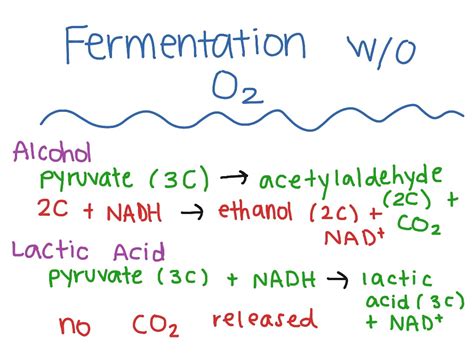 Fermentation w/o
O₂
Alcohol
pyruvate (3C) → acetylaldehyde
(2C) + CO₂
2C + NADH → ethanol (2C) +
NAD⁺
Lactic Acid
pyruvate (3C) + NADH → lactic
acid (3C)
+ NAD⁺
no CO₂ released